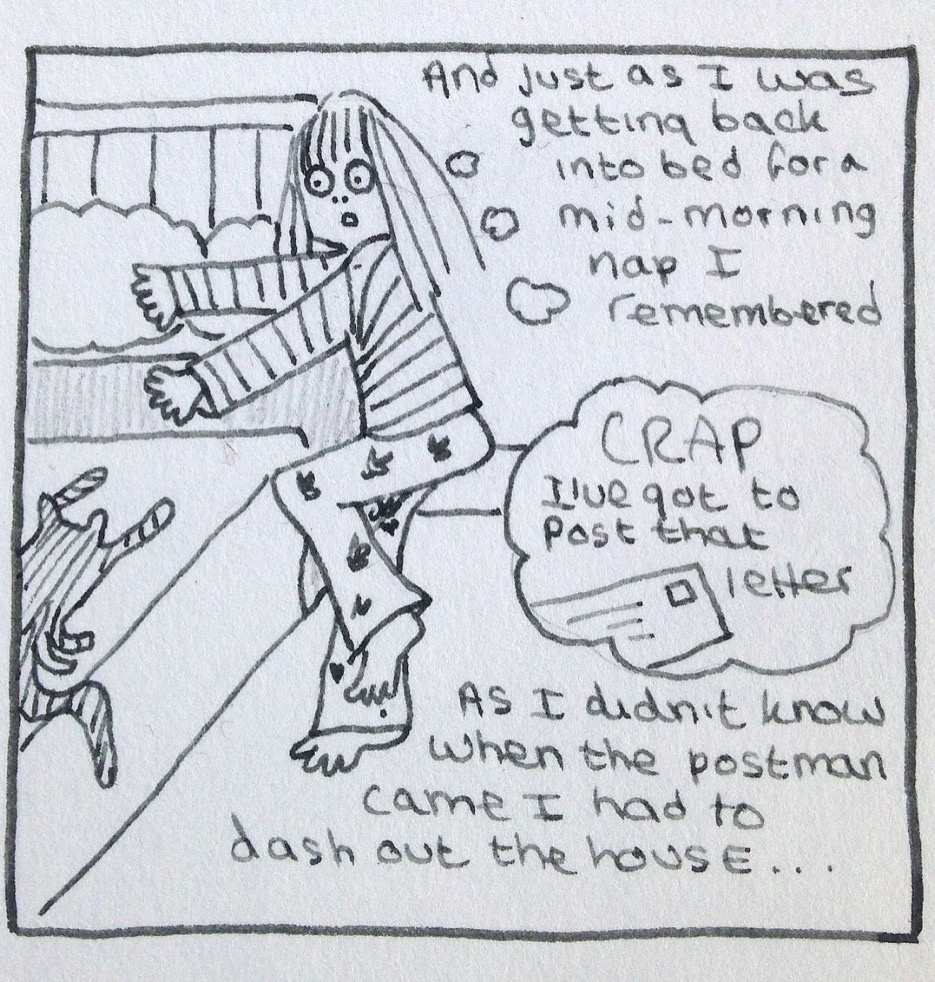 And just as I was
getting back
into bed for a
mid-morning
nap I
remembered
CRAP
I've got to
Post that
letter
As I didn't know
when the postman
came I had to
dash out the house...